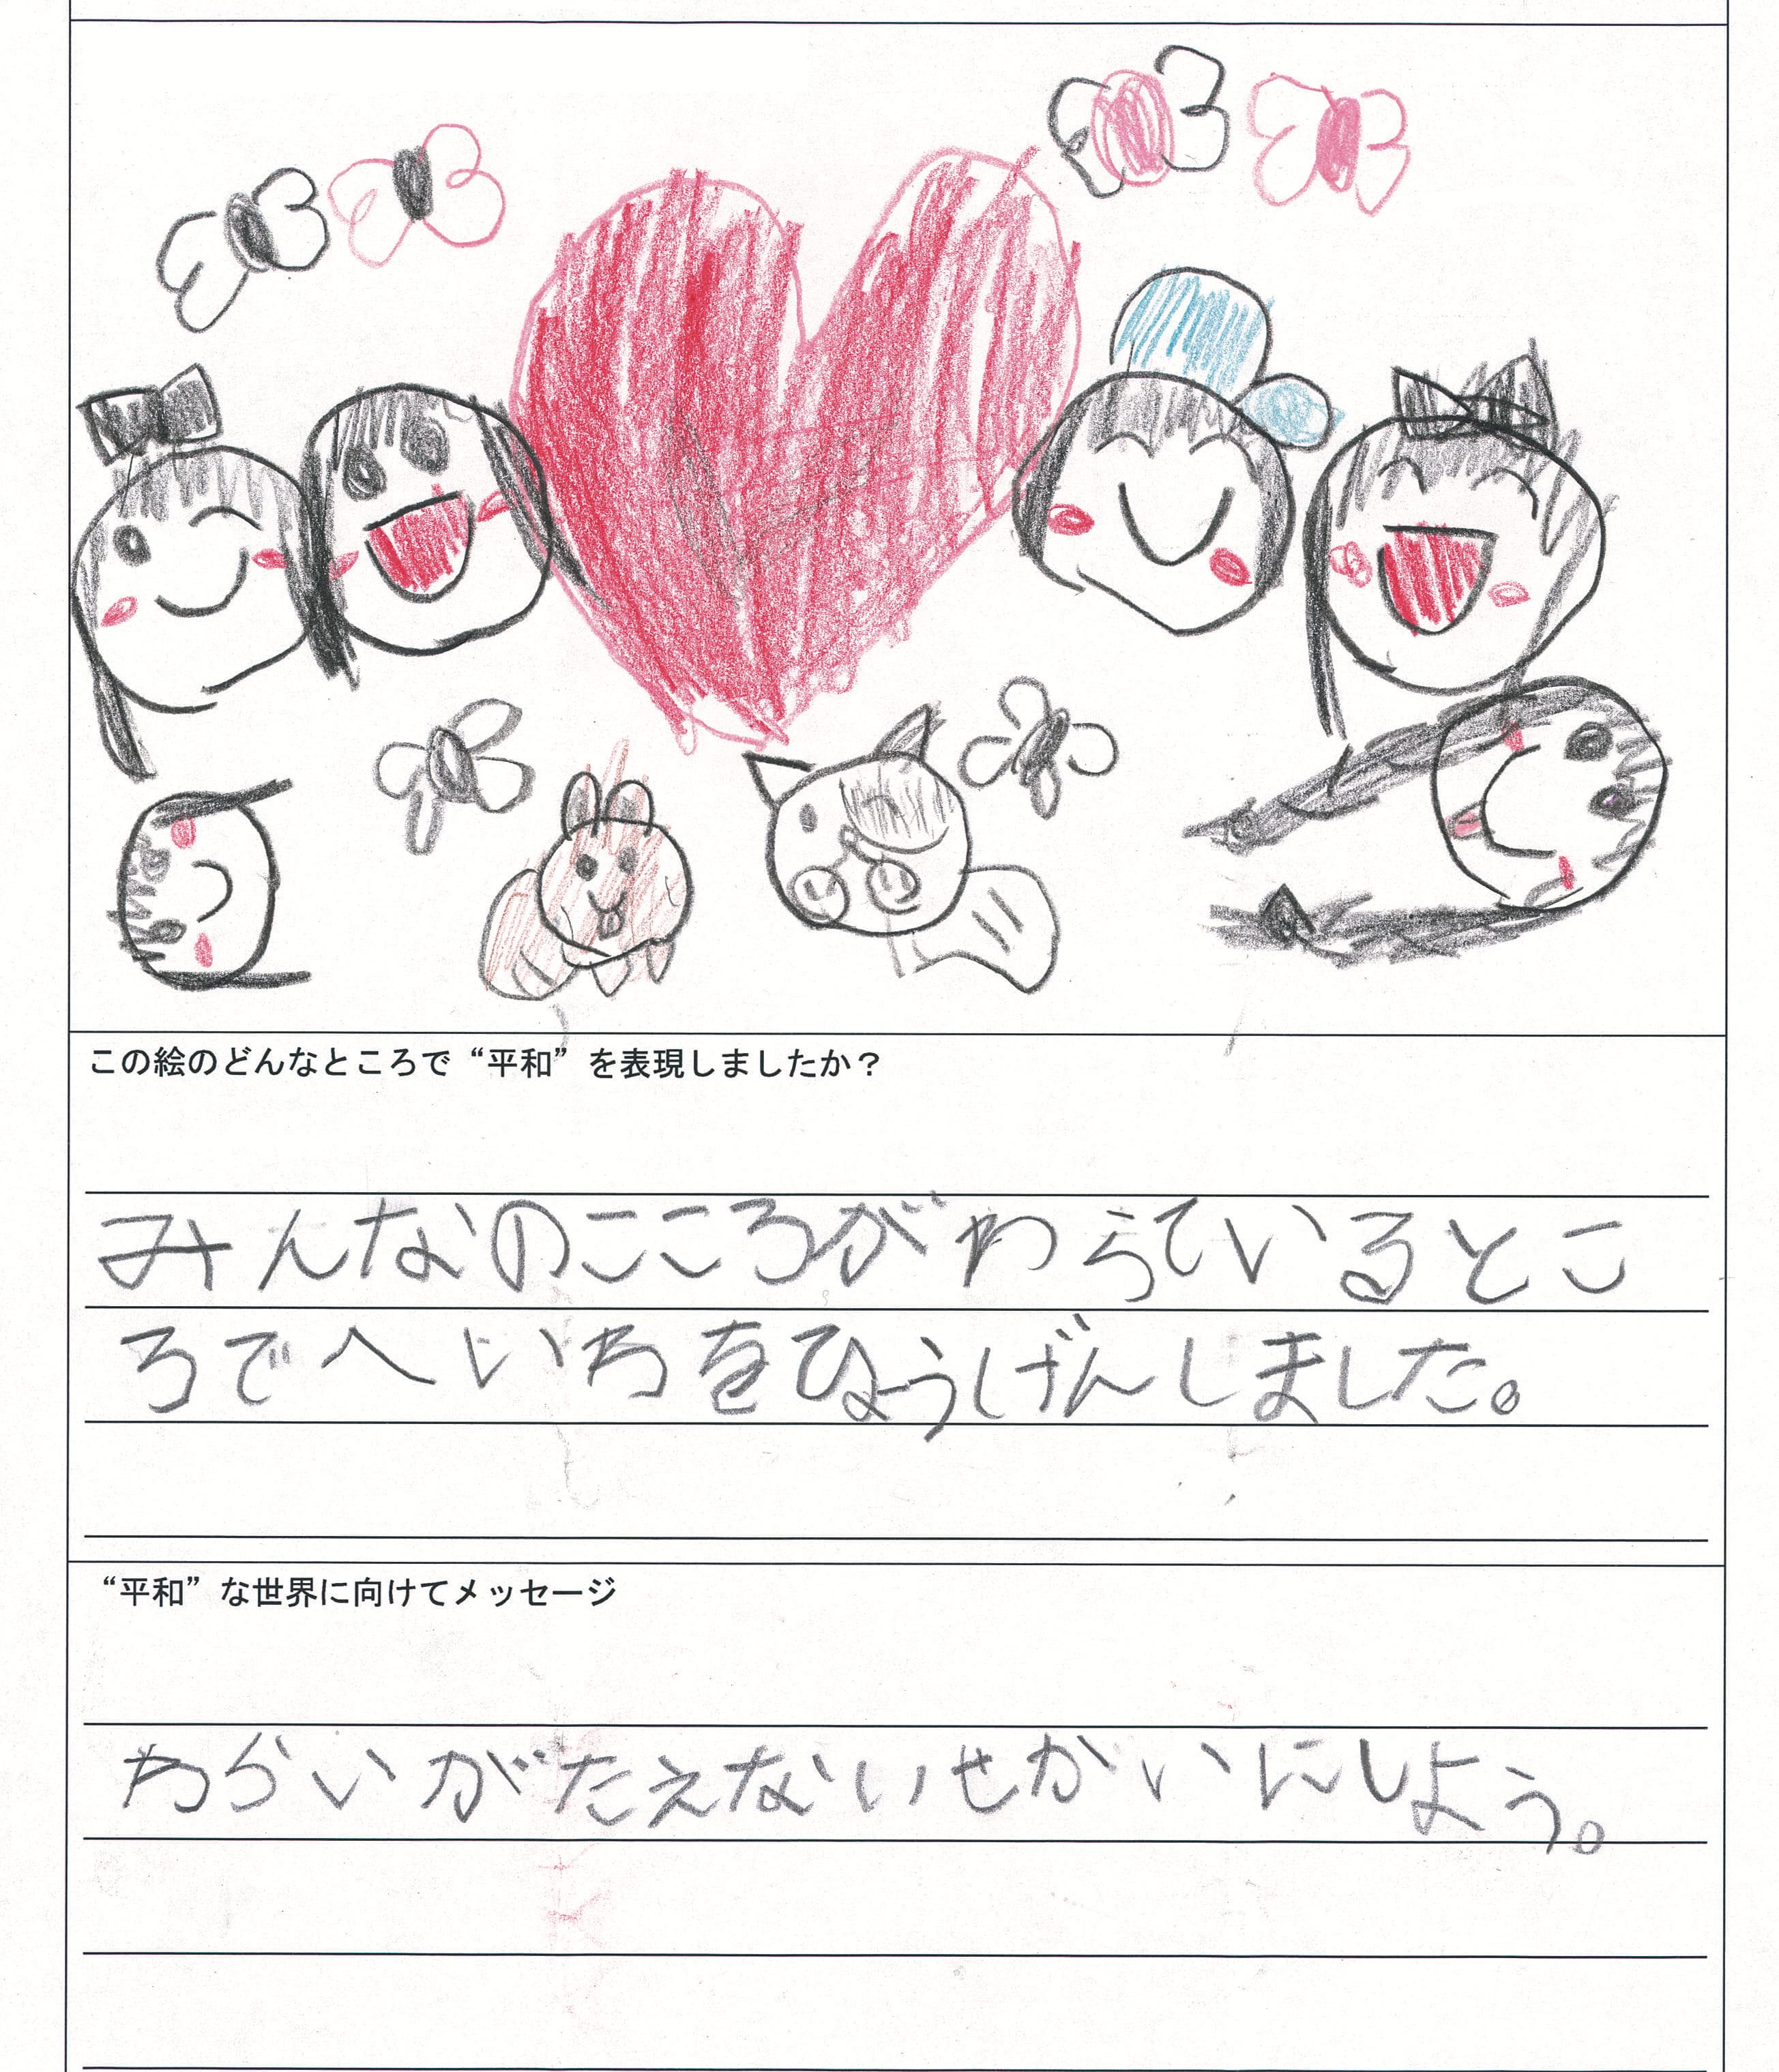 この絵のどんなところで“平和”を表現しましたか？
みんなのこころがわらているとこ
ろでへいわをひょうげんしました。
“平和”な世界に向けてメッセージ
わらいがたえないせかいにしよう。